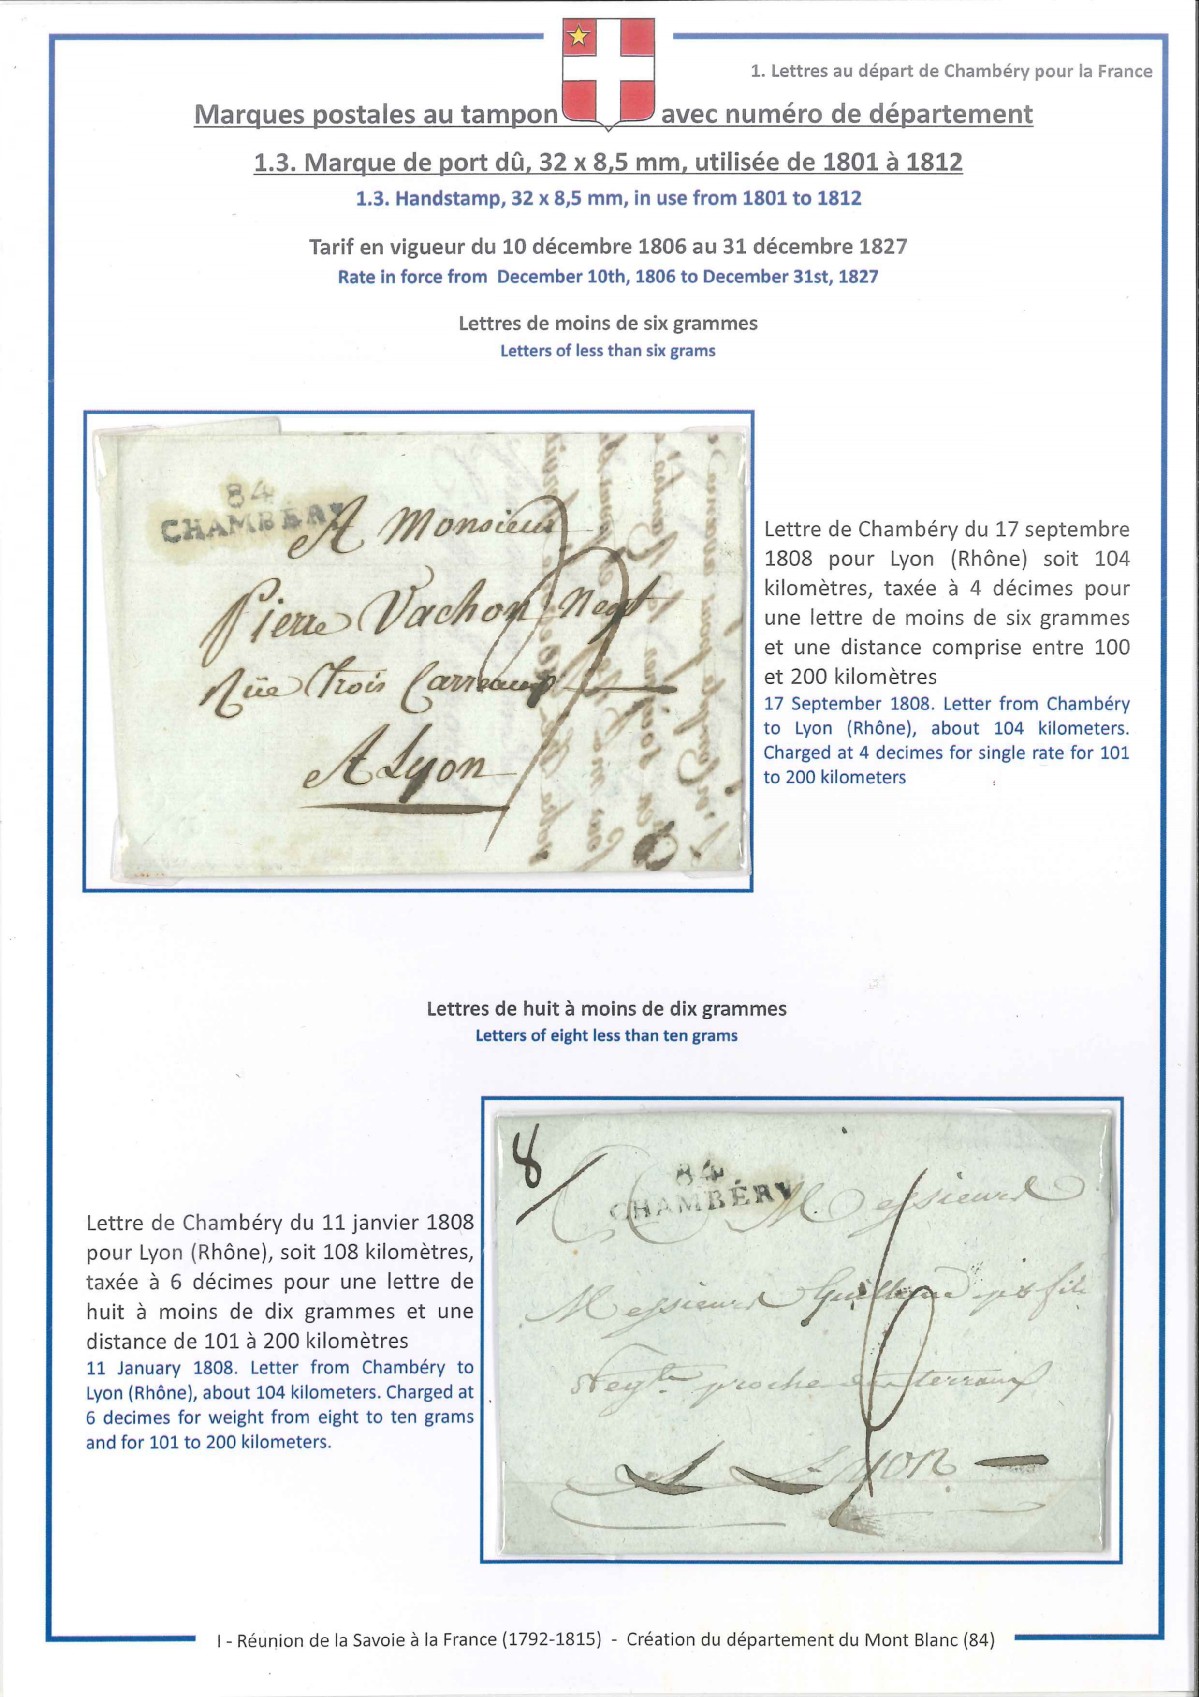 1. Lettres au départ de Chambéry pour la France
Marques postales au tampon avec numéro de département
1.3. Marque de port dû, 32 x 8,5 mm, utilisée de 1801 à 1812
1.3. Handstamp, 32 x 8,5 mm, in use from 1801 to 1812
Tarif en vigueur du 10 décembre 1806 au 31 décembre 1827
Rate in force from December 10th, 1806 to December 31st, 1827
Lettres de moins de six grammes
Letters of less than six grams
84
CHAMBÉRY
A Monsieur
Pierre Vachon Negt
Rüe Trois Carreaux
A Lyon
Lettre de Chambéry du 17 septembre
1808 pour Lyon (Rhône) soit 104
kilomètres, taxée à 4 décimes pour
une lettre de moins de six grammes
et une distance comprise entre 100
et 200 kilomètres
17 September 1808. Letter from Chambéry
to Lyon (Rhône), about 104 kilometers.
Charged at 4 decimes for single rate for 101
to 200 kilometers
Lettres de huit à moins de dix grammes
Letters of eight less than ten grams
Lettre de Chambéry du 11 janvier 1808
pour Lyon (Rhône), soit 108 kilomètres,
taxée à 6 décimes pour une lettre de
huit à moins de dix grammes et une
distance de 101 à 200 kilomètres
11 January 1808. Letter from Chambéry to
Lyon (Rhône), about 104 kilometers. Charged at
6 decimes for weight from eight to ten grams
and for 101 to 200 kilometers.
8
84
CHAMBÉRY
Messieurs
Messieurs Guillaume fils
Negts proche
A Lyon
6
I - Réunion de la Savoie à la France (1792-1815) - Création du département du Mont Blanc (84)